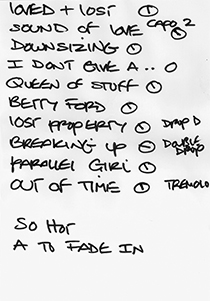 LOVED + LOST ①
SOUND OF LOVE CAPO 2 ①
DOWNSIZING ①
I DONT GIVE A .. O
QUEEN OF STUFF ①
BETTY FORD ①
LOST PROPERTY ① DROP D
BREAKING UP ① DOUBLE DROP D
PARALLEL GIRL ①
OUT OF TIME ① TREMOLO
SO HOT
A TO FADE IN